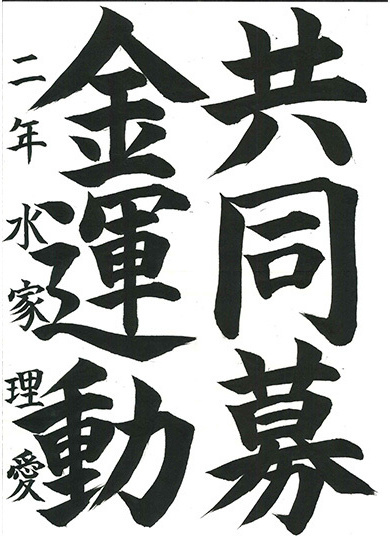 共同募
金運動
二年 水家理愛